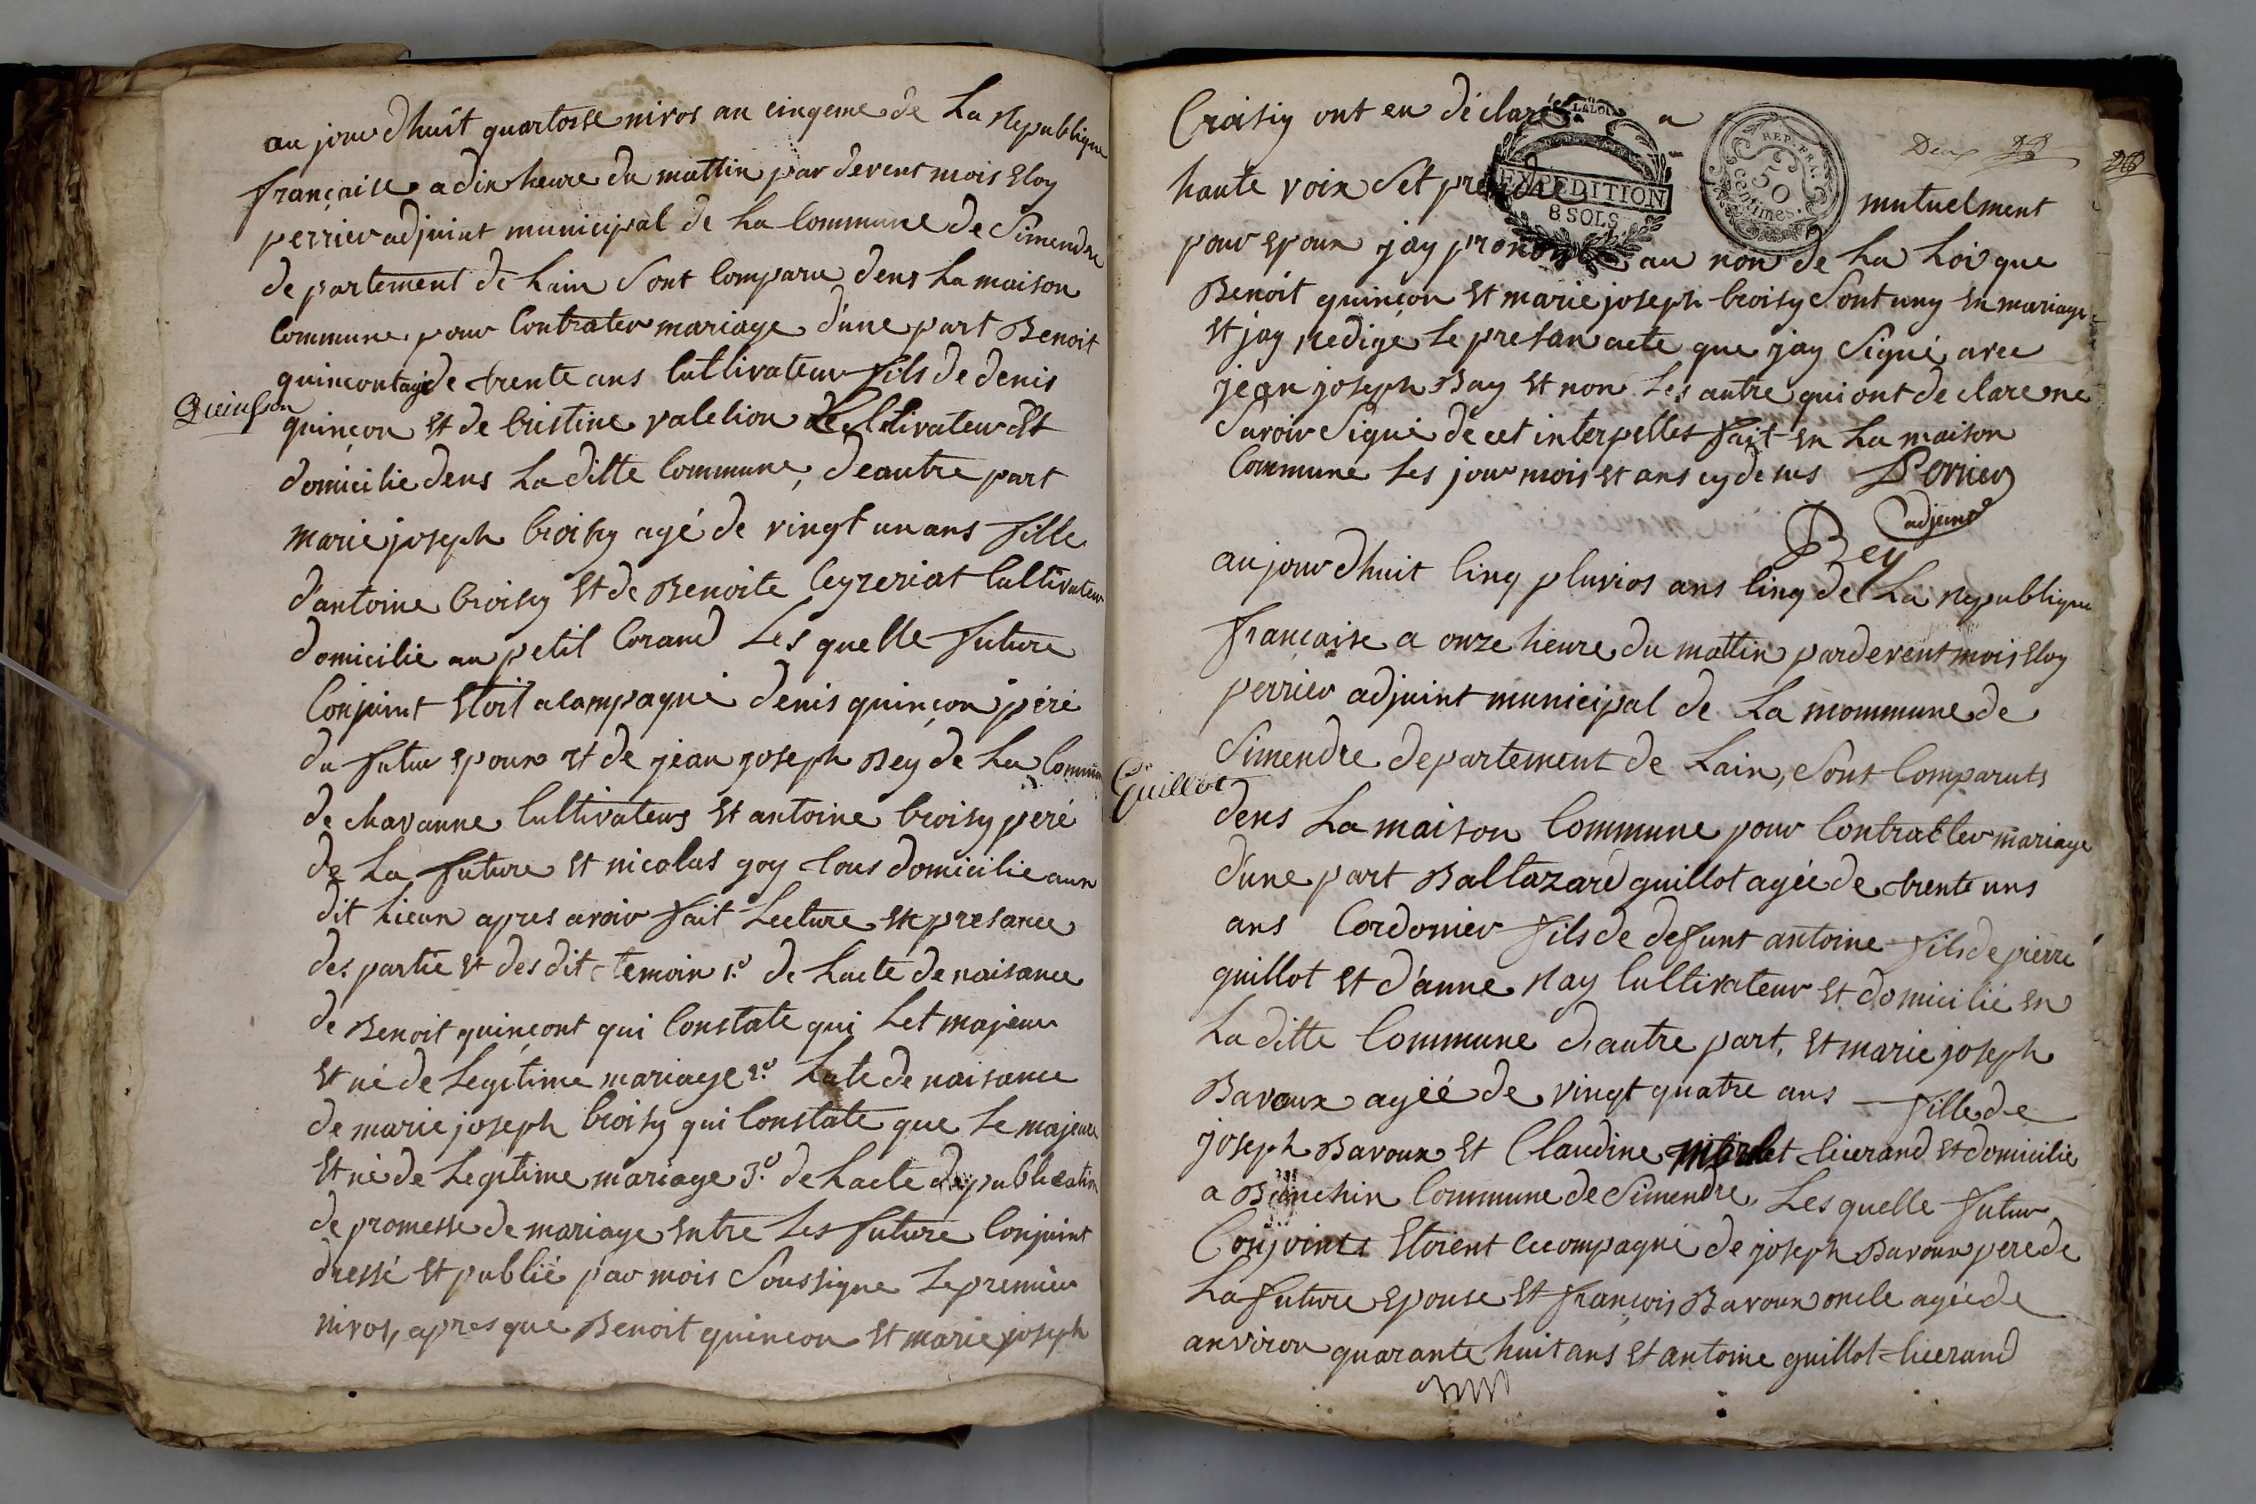 au jour dhuit quartorse nivos an cinqeme de La Republique
française a dix heure du mattin par devent mois Eloy
perrier adjoint municipal de La Commune de Simendre
de partement de Lain Sont Comparu dens La maison
Commune pour Contrater mariage d'une part Benoit
quinçont agé de trente ans Cultivateur fils de denis
Quinson
quinçon Et de Cristine valelion Cultivateur Et
domicilie dens La ditte Commune, deautre part
marie joseph Croisy agé de vingt un ans fille
d'antoine Croisy Et de Benoite Ceyzeriat Cultivateur
domicilie au petit Corand Les quelle future
Conjoint Etoit acampagné denis quinçon péré
du futur Epoux Et de jean joseph Bey de La Commune
de chavanne Cultivateurs Et antoine Croisy péré
de La future Et nicolas goy tous domicilie aux
dit Lieux apres avoir fait Lecture En presance
des partie Et des dit temoin 1º de Lacte de naisance
de Benoit quinçont qui Constate qui Let majeur
Et né de Legitime mariage 2º Late de naisance
de marie joseph Croisy qui Constate que Le majeure
Et né de Legitime mariage 3º de Lacte de publication
de promesse de mariage Entre Les future Conjoint
dressé Et publié par mois Soussigne Le premier
nivos, apres que Benoit quincon Et marie joseph
Croisiy ont eu déclaré a
LA LOI
EXPEDITION
8 SOLS
REP. FRA.
50
centimes.
Deux
haute voix Set prendre mutuelment
pour Epoux jay prononcé au non de La Loi que
Benoit quinçon Et marie joseph Croisy Sont uny En mariage
Et jay Redigé Le presan acte que jay Signé avec
jean joseph Bay Et non Les autre qui ont de clare ne
Savoir Signé de cet interpelles fait En La maison
Commune Les jour mois Et ans cy desus Perrier
adjoint
Bey
au jour dhuit Cinq pluvios ans Cinq de La Republique
française a onze heure du mattin pardevent mois Eloy
perrier adjoint municipal de La mommune de
Simendre departement de Lain, Sont Comparuts
Guillot
dens La maison Commune pour Contratter mariage
d'une part Baltazard guillot agée de trente uns
ans Cordonier fils de defunt antoine fils de pierre
guillot Et d'anne Nay Cultivateur Et domicilié En
La ditte Commune d'autre part, Et marie joseph
Bavoux agéé de vingt quatre ans fille de
joseph Bavoux Et Claudine ticerand Et domicilie
a Commune de Simendre, Les quelle futur
Conjoints Etoient accompagné de joseph Bavoux pere de
La future Epouse Et françois Bavoux oncle agée de
anviron quarante huit ans Et antoine guillot ticerand